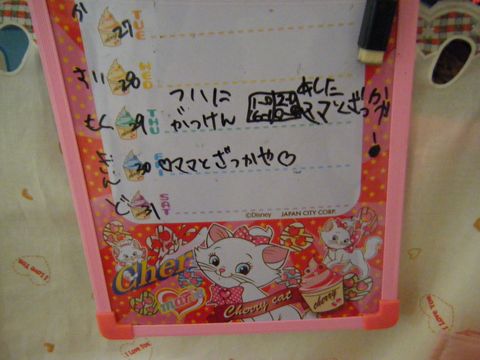 か 27 TUE
すい 28 WED
もく 29 THU ついに がっけん あしたママとざっかやー!
きん 30 FRI ♡ママとざっかや♡
ど 31 SAT
©Disney JAPAN CITY CORP.
Cherry
marie
Cherry cat
cherry
I love you.